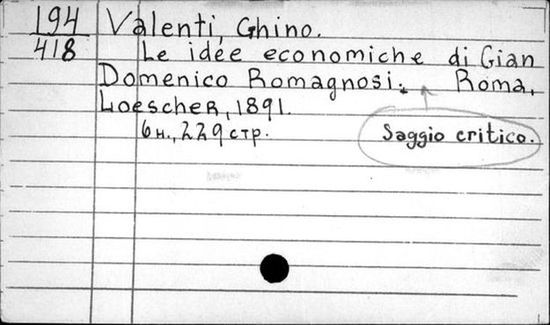 194 Valenti, Ghino.
418 Le idée economiche di Gian
Domenico Romagnosi. Roma,
Loescher, 1891.
6н., 229 стр.
Saggio critico.